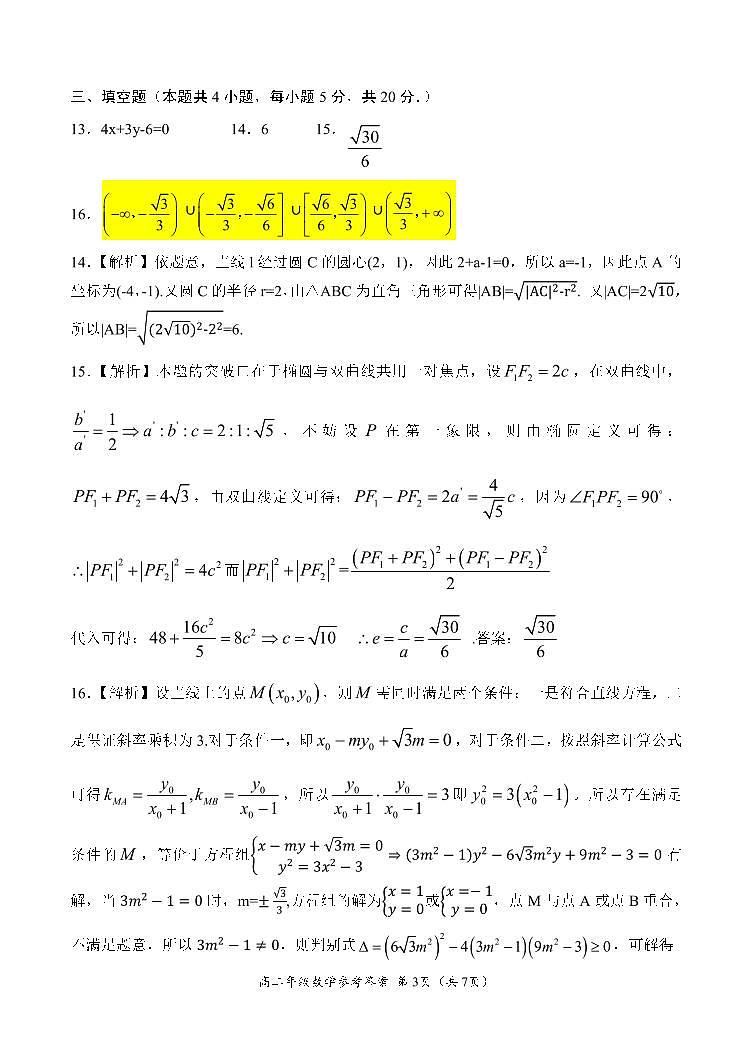 三、填空题（本题共 4 小题，每小题 5 分，共 20 分.）
13．4x+3y-6=0 14．6 15．√30/6
16．(−∞,−√3/3)∪(−√3/3,−√6/6]∪[√6/6,√3/3)∪(√3/3,+∞)
14.【解析】依题意，直线 l 经过圆 C 的圆心(2，1)，因此 2+a-1=0，所以 a=-1，因此点 A 的
坐标为(-4，-1).又圆 C 的半径 r=2，由△ABC 为直角三角形可得|AB|=√(|AC|²-r²). 又|AC|=2√10，
所以|AB|=√((2√10)²-2²)=6.
15.【解析】本题的突破口在于椭圆与双曲线共用一对焦点，设F₁F₂=2c，在双曲线中，
b'/a'=1/2⇒a':b':c=2:1:√5，不妨设 P 在第一象限，则由椭圆定义可得：
PF₁+PF₂=4√3，由双曲线定义可得：PF₁−PF₂=2a'=4/√5 c，因为∠F₁PF₂=90°，
∴|PF₁|²+|PF₂|²=4c²而|PF₁|²+|PF₂|²=((PF₁+PF₂)²+(PF₁−PF₂)²)/2
代入可得：48+16c²/5=8c²⇒c=√10 ∴e=c/a=√30/6 .答案：√30/6
16.【解析】设直线上的点M(x₀,y₀)，则M需同时满足两个条件：一是符合直线方程，二
是保证斜率乘积为 3.对于条件一，即x₀−my₀+√3m=0，对于条件二，按照斜率计算公式
可得k_MA=y₀/(x₀+1),k_MB=y₀/(x₀−1)，所以y₀/(x₀+1)·y₀/(x₀−1)=3即y₀²=3(x₀²−1)。所以存在满足
条件的M，等价于方程组{x−my+√3m=0 y²=3x²−3 ⇒(3m²−1)y²−6√3m²y+9m²−3=0 有
解，当3m²−1=0时，m=±√3/3,方程组的解为{x=1 y=0或{x=−1 y=0，点 M 与点 A 或点 B 重合，
不满足题意．所以3m²−1≠0．则判别式Δ=(6√3m²)²−4(3m²−1)(9m²−3)≥0．可解得
高二年级数学参考答案 第 3页（共 7页）